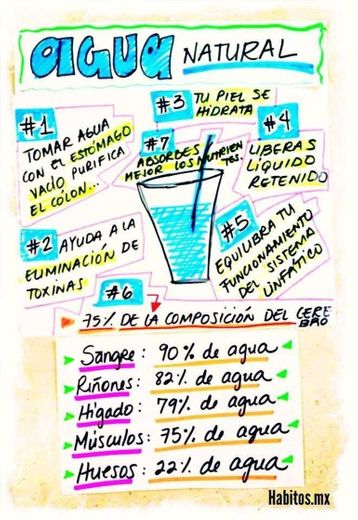 AGUA NATURAL
#1
TOMAR AGUA
CON EL ESTÓMAGO
VACÍO PURIFICA
EL COLON...
#3 TU PIEL SE
HIDRATA
#7
ABSORBES
MEJOR LOS NUTRIEN
TES.
#4
LIBERAS
LÍQUIDO
RETENIDO
#2 AYUDA A LA
ELIMINACIÓN DE
TOXINAS
#5
EQUILIBRA TU
FUNCIONAMIENTO
DEL SISTEMA
LINFÁTICO
#6
75% DE LA COMPOSICIÓN DEL CERE
BRO
Sangre: 90% de agua
Riñones: 82% de agua
Hígado: 79% de agua
Músculos: 75% de agua
Huesos: 22% de agua
Habitos.mx